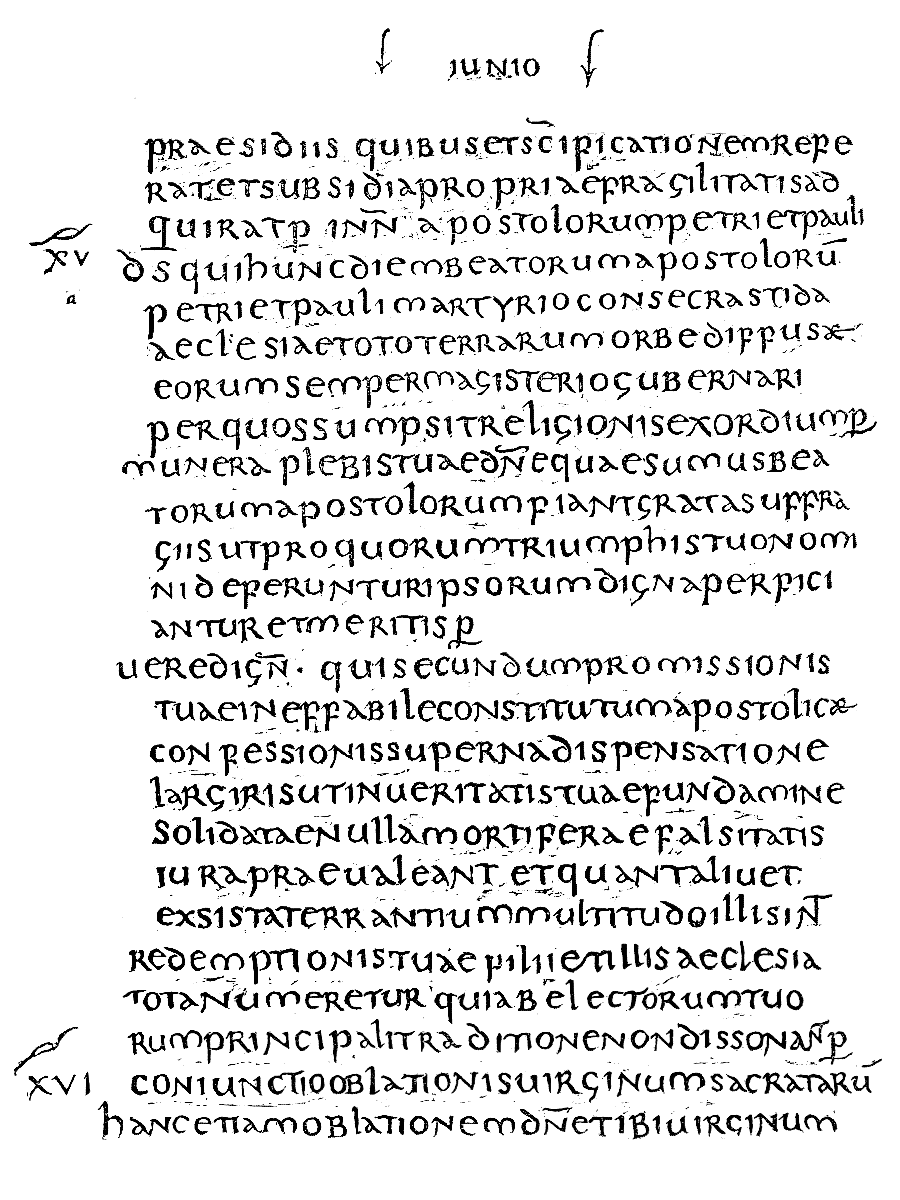 IUNIO
praesidiis quibus et sc̄ipicationem repe
rat et subsidia propriae fragilitatis ad
quirat p̱ inn̄ apostolorum petri et pauli
XV
ds qui hunc diem beatorum apostolorū
a
petri et pauli martyrio consecrasti da
aeclesiae toto terrarum orbe diffusæ
eorum semper magisterio gubernari
per quos sumpsit religionis exordium p̱
munera plebis tuae dn̄e quaesumus bea
torum apostolorum fiant grata suffra
giis ut pro quorum triumphis tuo nomi
ni deferuntur ipsorum digna perfici
antur et meritis p̱
uere dign̄. qui secundum promissionis
tuae ineffabile constitutum apostolicæ
confessioni s superna dispensatione
largiris ut in ueritatis tuae fundamine
solidatae nulla mortifera e falsitatis
iura praeualeant et quantaliuet
exsistat errantium multitudo illi sint̄
redemptionis tuae filii et illis aeclesia
tota numeretur quiab electorum tuo
rum principali traditione non dissonan̄ p̱
XVI coniunctio oblationis uirginum sacratarū
hanc etiam oblationem dn̄e tibi uirginum